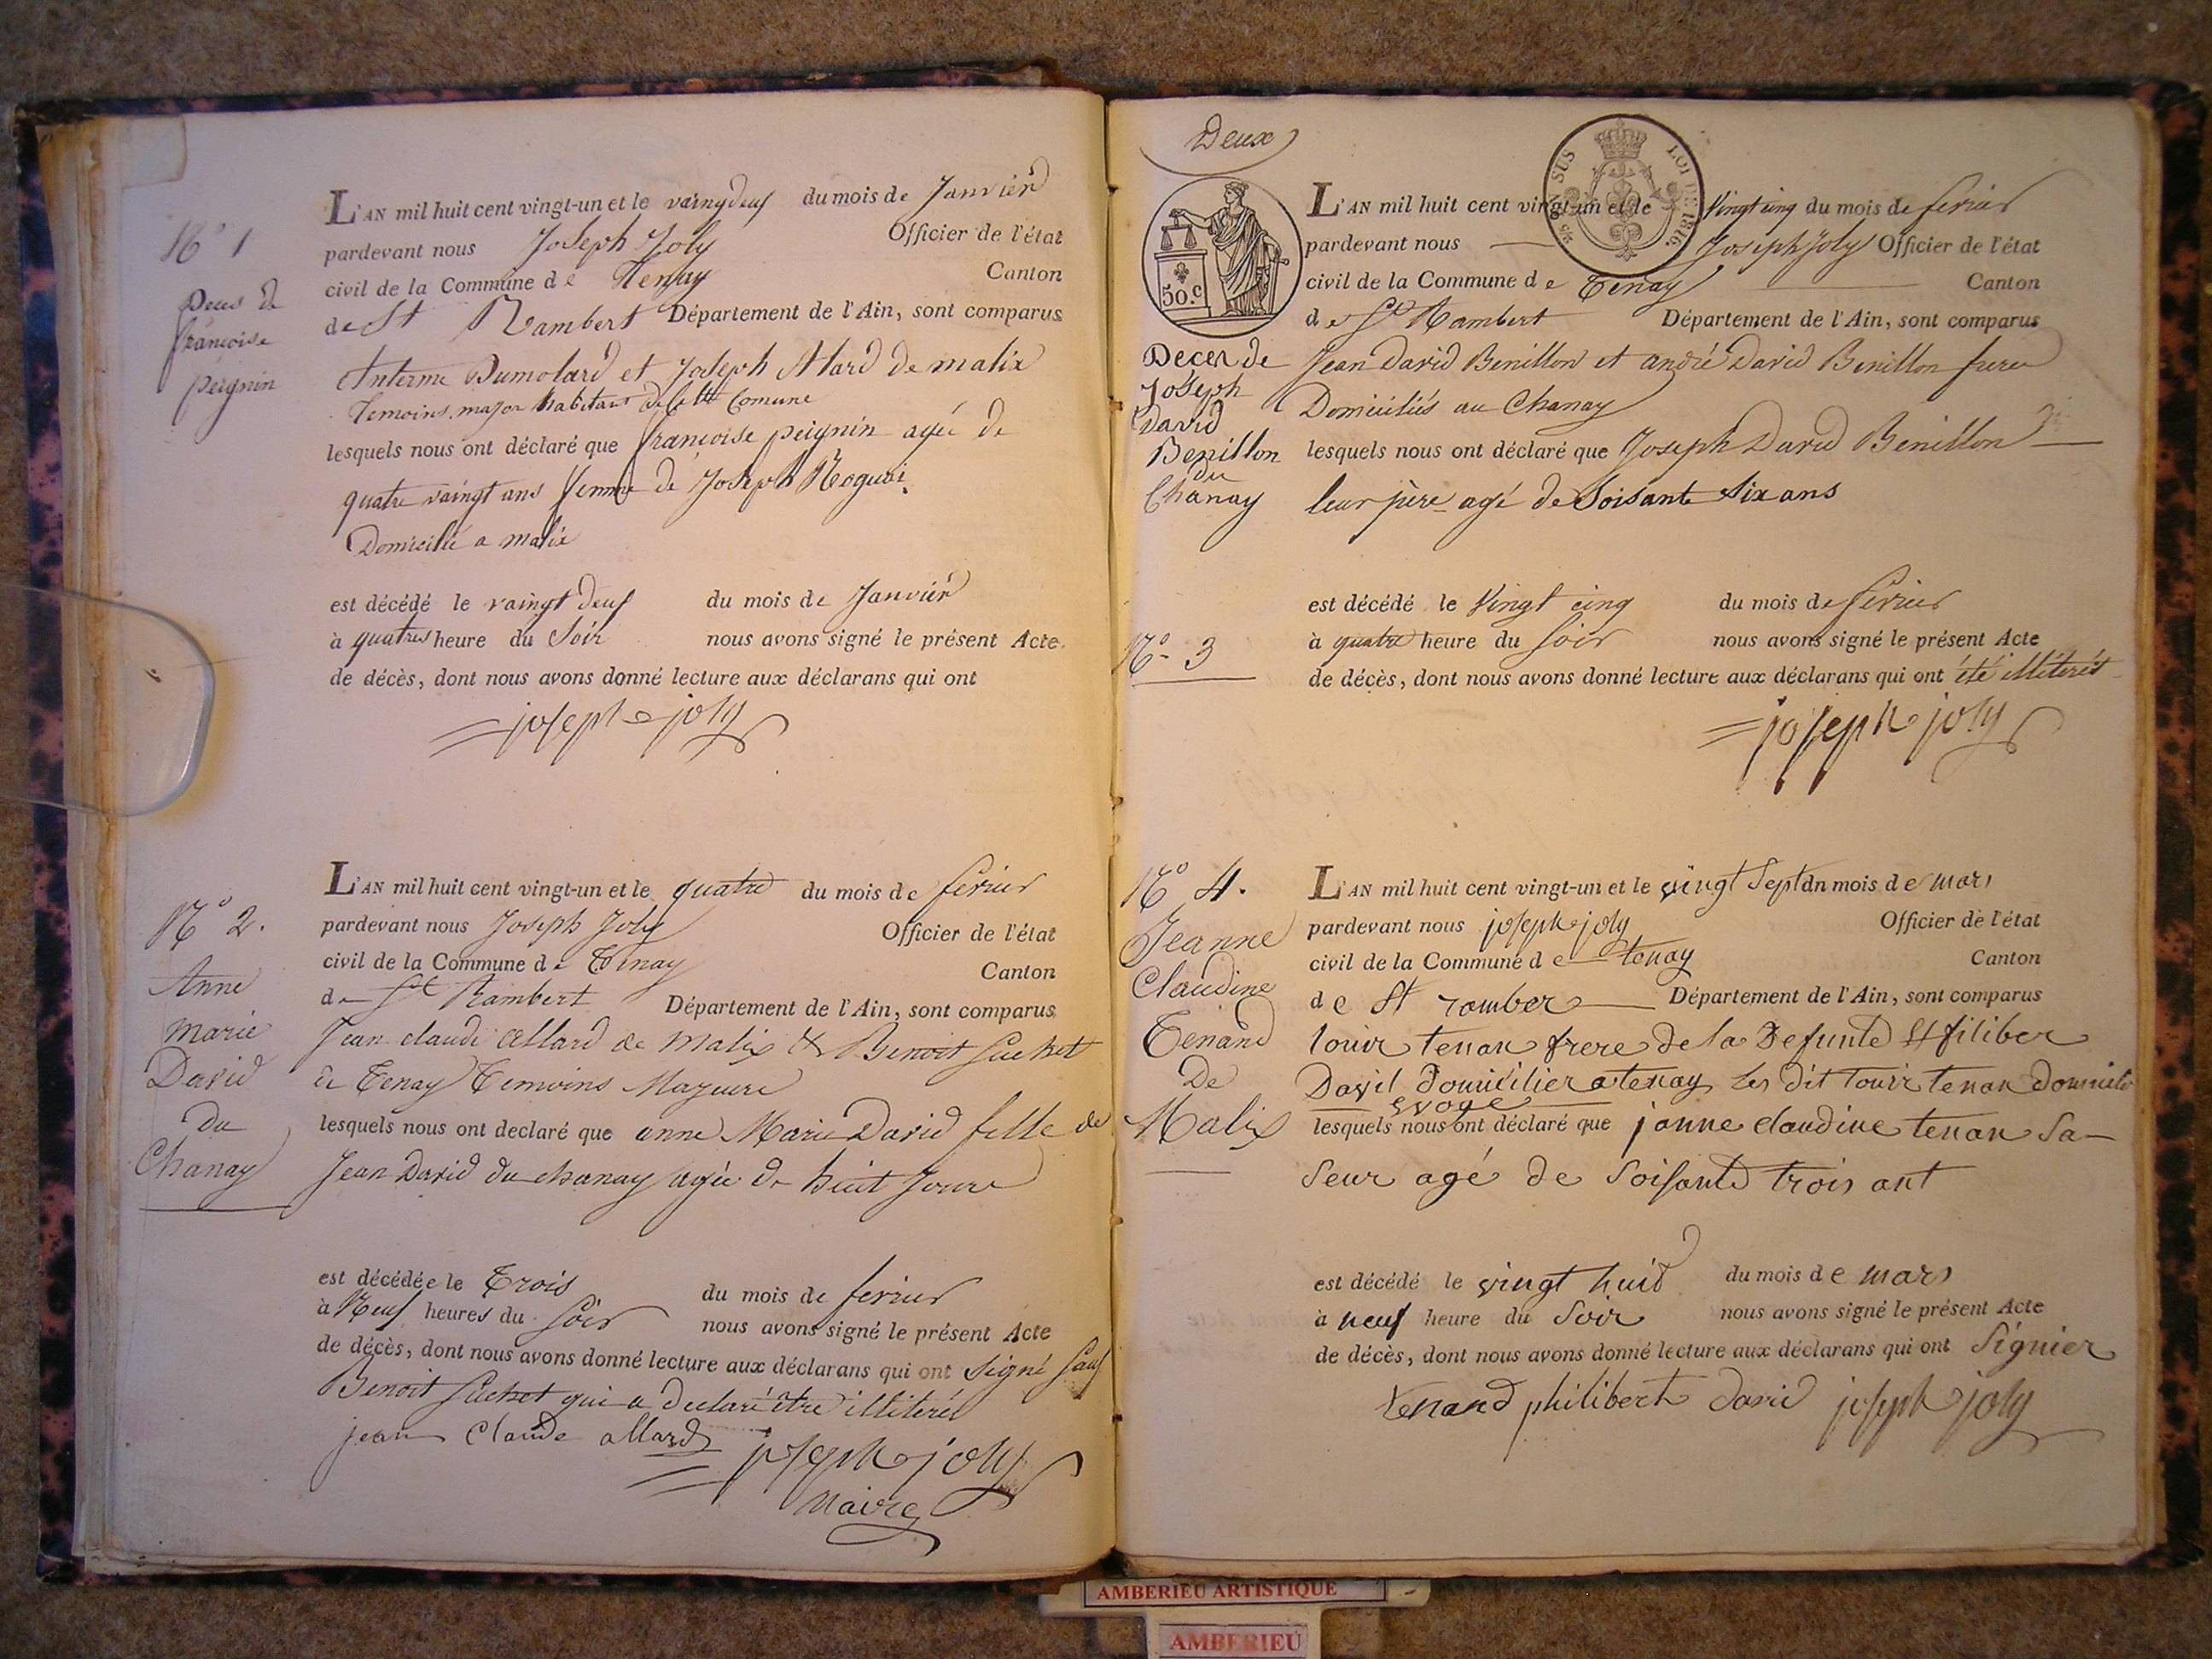 N° 1
Deces de
françoise
peignin
L'AN mil huit cent vingt-un et le vaingdeuf du mois de Janvier
pardevant nous Joseph Joly Officier de l'état
civil de la Commune de Tenay Canton
de St Rambert Département de l'Ain, sont comparus
Anterme Dumolard et Joseph Alard de malix
Temoins major habitans de cette Comune
lesquels nous ont déclaré que françoise peignin agée de
quatre vaingt ans femme de Joseph
Domicilié a malix
est décédé le vaingt deuf du mois de Janvier
à quatres heure du Soir nous avons signé le présent Acte
de décès, dont nous avons donné lecture aux déclarans qui ont
joseph joly
N° 2.
Anne
marie
David
Du
Chanay
L'AN mil huit cent vingt-un et le quatre du mois de ferier
pardevant nous Joseph Joly Officier de l'état
civil de la Commune de Tenay Canton
de St Rambert Département de l'Ain, sont comparus
Jean claude Allard de Malix & Benoit Suchet
de Tenay Temoins Majeurs
lesquels nous ont declaré que anne Marie David fille de
Jean David du chanay agée de huit Jours
est décédée le Trois du mois de ferier
à Neuf heures du Soir nous avons signé le présent Acte
de décès, dont nous avons donné lecture aux déclarans qui ont signé sauf
Benoit Suchet qui a declaré être illiteré
jean Claude allard joseph joly
maire
Deux
50. c
EN SUS
LOI DE 1816.
Decer de
Joseph
David
Benillon
du
Chanay
N° 3
L'AN mil huit cent vingt-un et le Vingt cinq du mois de ferier
pardevant nous Joseph Joly Officier de l'état
civil de la Commune de Tenay Canton
de St Rambert Département de l'Ain, sont comparus
Jean David Benillon et andré David Benillon frere
Domiciliés au Chanay
lesquels nous ont déclaré que Joseph David Benillon
leur père agé de Soisante Six ans
est décédé le Vingt cinq du mois de ferier
à quatre heure du Soir nous avons signé le présent Acte
de décès, dont nous avons donné lecture aux déclarans qui ont été illiterés
joseph joly
N° 4.
Jeanne
Claudine
Tenand
De
Malix
L'AN mil huit cent vingt-un et le vingt Sept du mois de mars
pardevant nous joseph joly Officier de l'état
civil de la Commune de tenay Canton
de St romber Département de l'Ain, sont comparus
louir tenan frere de la Defunte Et filiber
David domicilier a tenay Les dit louir tenan domicile
evoge
lesquels nous ont déclaré que janne claudine tenan Sa
Seur agé de Soisante trois ant
est décédé le vingt huid du mois de mars
à neuf heure du Soir nous avons signé le présent Acte
de décès, dont nous avons donné lecture aux déclarans qui ont Signier
tenand philibert david joseph joly
AMBERIEU ARTISTIQUE
AMBERIEU